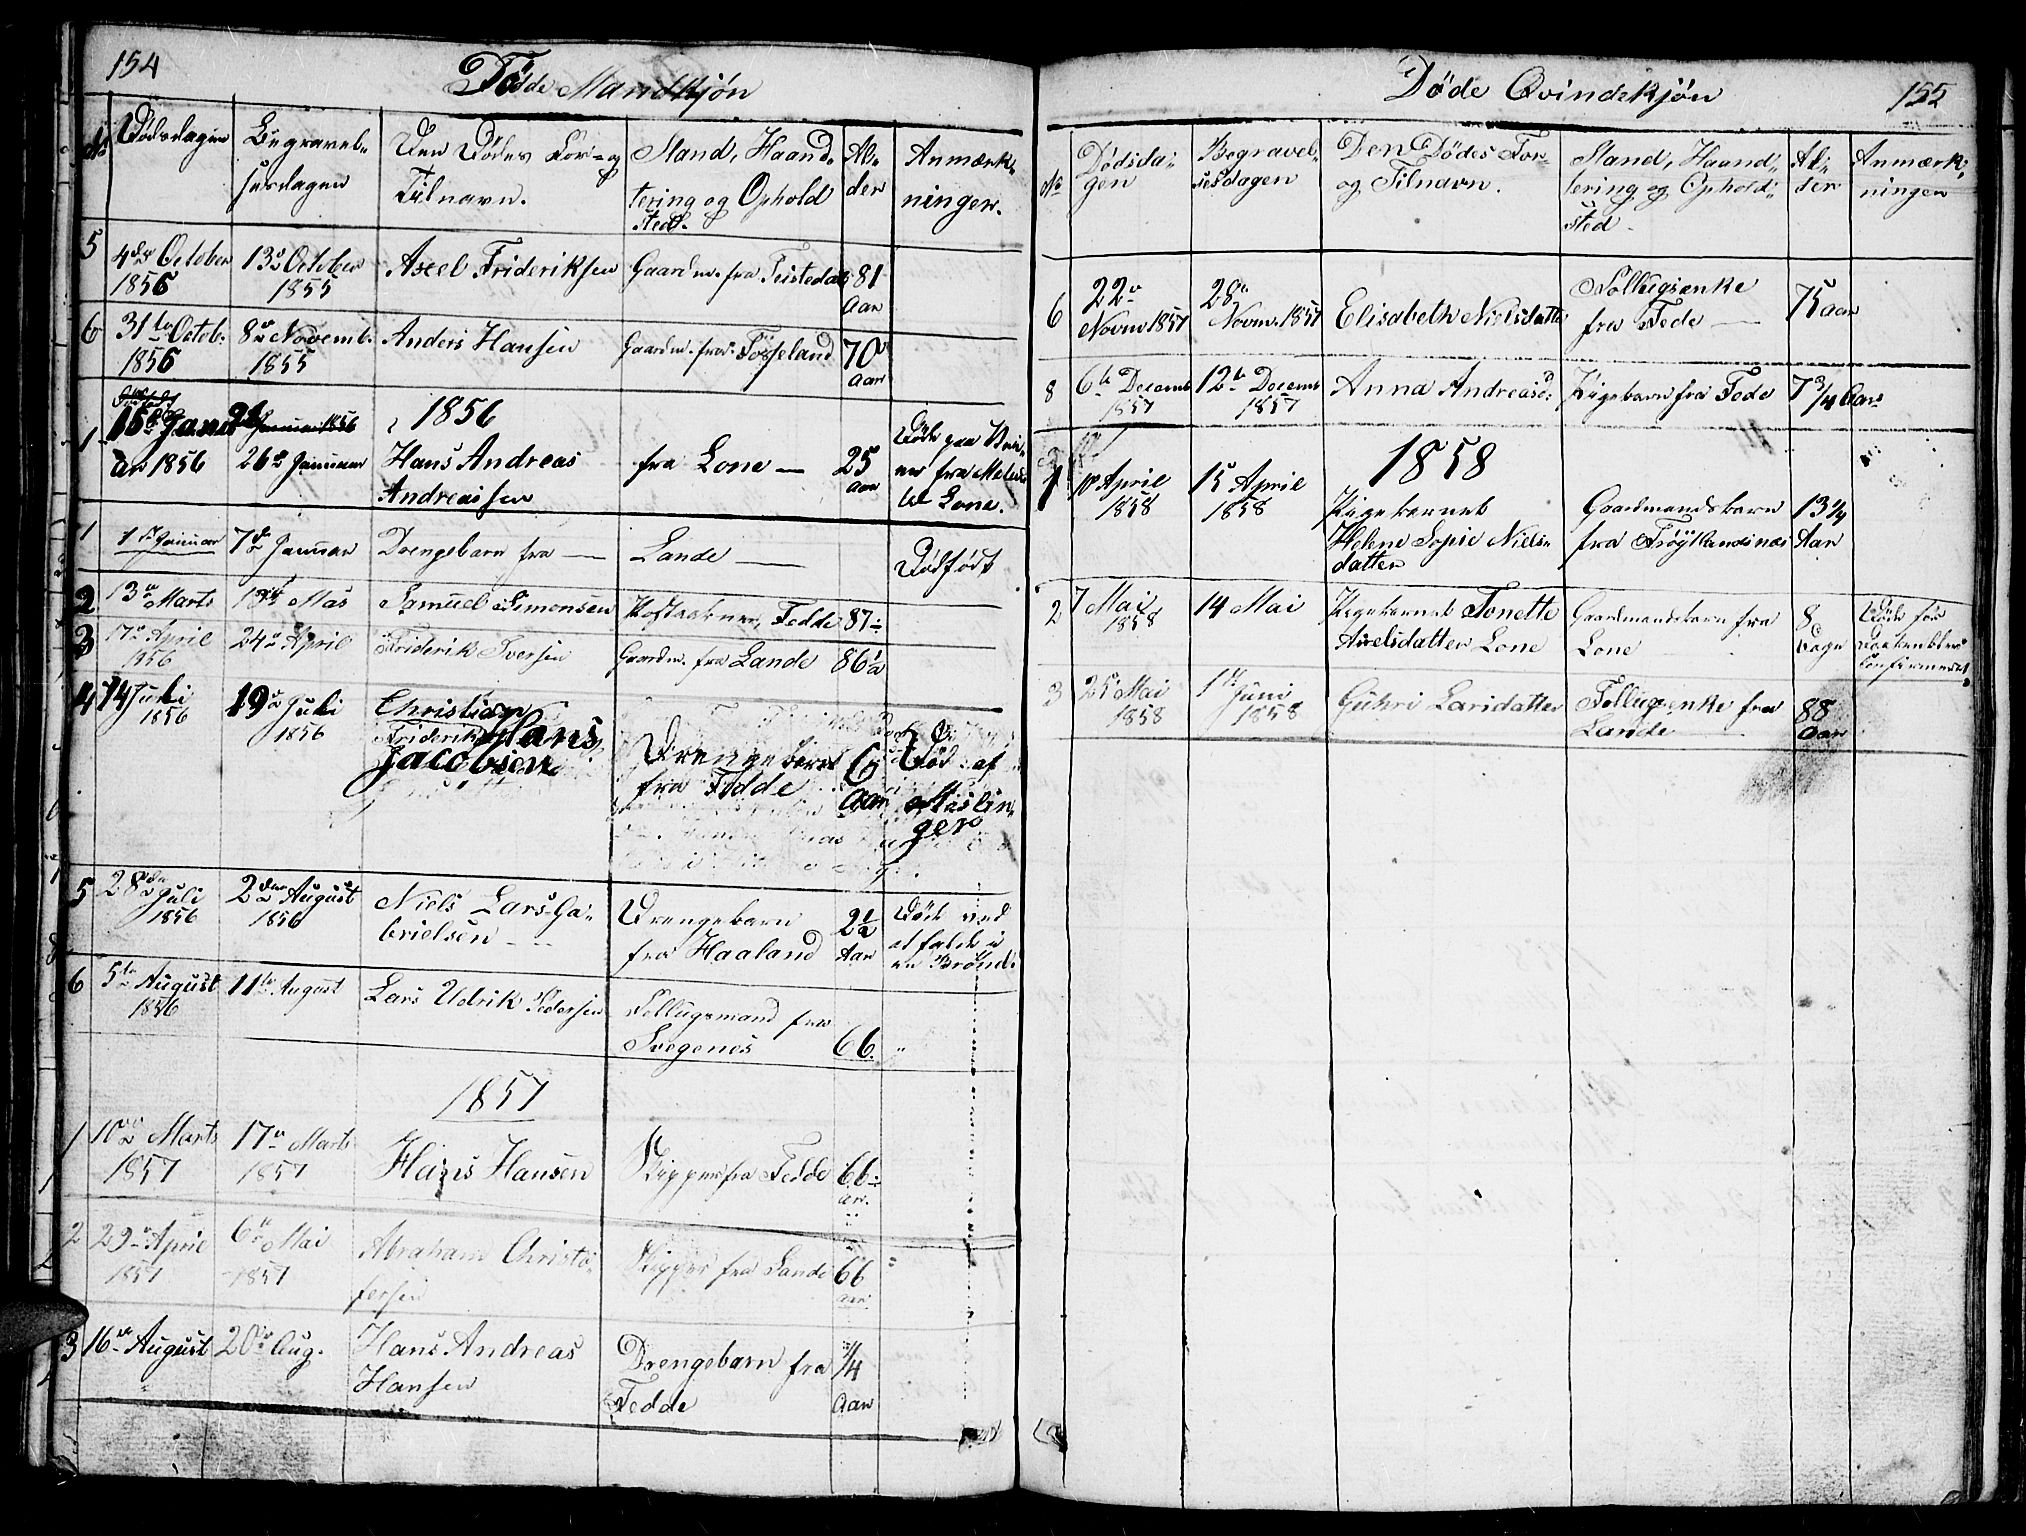 154
Døde Mandkjøn
No Dødsdagen Begravel-
sesdagen
Den Dødes For- og
Tilnavn.
Stand, Haand-
tering og Ophold
sted.
Al-
der
Anmærk-
ninger.
5 4de October
1856
13de October
1855
Axel Frideriksen Gaardm. fra Teistedal 81
Aar
6 31te Octob.
1856
8de Novemb.
1855
Anders Hansen Gaardm. fra Fosseland 70
Aar
1856
1 15de Janu
ar 1856
26de Januar
Hans Andreas
Andreassen
fra Lone 25
Aar
Døde paa
fra
Lone.
1 1de Januar 7de Januar Drengebarn fra Lande Dødfødt
2 13de Marts Samuel Simonsen Fedde 87
3 17de April
1856
24de April Friderik Iversen Gaardm. fra Lande 86½
4 14 Juli
1856
19de Juli
1856
Christian
Friderik Hans
Jacobsen
Drengebarn
fra Fedde
6
Aar
Død af
Mæslin-
ger
5 28de Juli
1856
2den August
1856
Niels Lars Ga-
brielsen
Drengebarn
fra Haaland
2½
Aar
Døde ved
at falde i
en Brønd.
6 5te August
1856
11te August Lars Udrik Pedersen Follugsmand fra
Svegenes 66.
1857
1 10de Marts
1857
17de Marts
1857
Hans Hansen Skipper fra Fedde 66
Aar.
2 29de April
1857
6te Mai
1857
Abraham Christo-
fersen
Skipper fra Lande 66
Aar
3 16de August 20de Aug. Hans Andreas
Hansen
Drengebarn fra
Fedde
3/4
Aar
Døde Qvindekjøn 155
No Dødsda-
gen
Begravel-
sesdagen
Den Dødes For-
og Tilnavn.
Stand, Haand-
tering og Ophold-
sted.
Al-
der
Anmærk-
ningen
6 22de
Novm 1857
28de
Novm. 1857
Elisabeth Nielsdatter Follugsenke
fra Fede
75 Aar
8 6te Decemb
1857
12te Decemb
1857
Anna Andreasd: Pigebarn fra Fede 7 3/4 Aar
1858
1 10 April
1858
15 April
1858
Pigebarnet
Helene Sopie Niels-
datter
Gaardmandsbarn
fra Frøytlandsnæs
13 1/4
Aar
2 7 Mai
1858
14 Mai Pigebarnet Tonette
Axelsdatter Lone
Gaardmandsbarn fra
Lone
8
Dage
Døde før
Daaben blev
Confirmeret.
3 25 Mai
1858
1te Juni
1858
Guhri Larsdatter Follugsenke fra
Lande
88
Aar